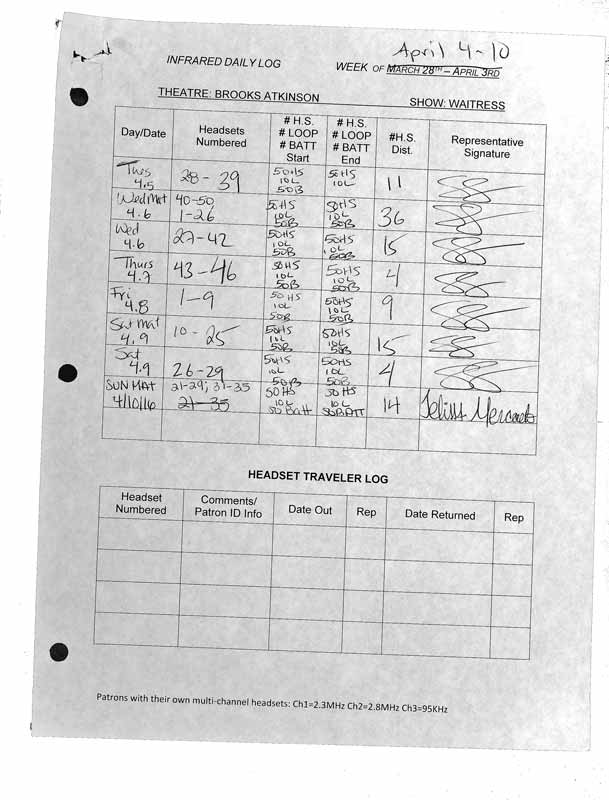 April 4-10
INFRARED DAILY LOG WEEK OF MARCH 28TH – APRIL 3RD
THEATRE: BROOKS ATKINSON SHOW: WAITRESS
Day/Date Headsets Numbered # H.S. # LOOP # BATT Start # H.S. # LOOP # BATT End #H.S. Dist. Representative Signature
Tues 4.5 28 - 39 50HS 10L 50B 50HS 10L 11
Wed Mat 4.6 40-50 1-26 50HS 10L 50B 50HS 10L 50B 36
Wed 4.6 27-42 50HS 10L 50B 50HS 10L 50B 15
Thurs 4.7 43-46 50HS 10L 50B 50HS 10L 50B 4
Fri 4.8 1-9 50HS 10L 50B 50HS 10L 50B 9
Sat Mat 4.9 10 - 25 50HS 10L 50B 50HS 10L 50B 15
Sat 4.9 26-29 50HS 10L 50B 50HS 10L 50B 4
SUN MAT 4/10/16 21-29; 31-35 21-35 50HS 10L 50 Batt 50 HS 10L 50BATT 14
HEADSET TRAVELER LOG
Headset Numbered Comments/ Patron ID Info Date Out Rep Date Returned Rep
Patrons with their own multi-channel headsets: Ch1=2.3MHz Ch2=2.8MHz Ch3=95KHz